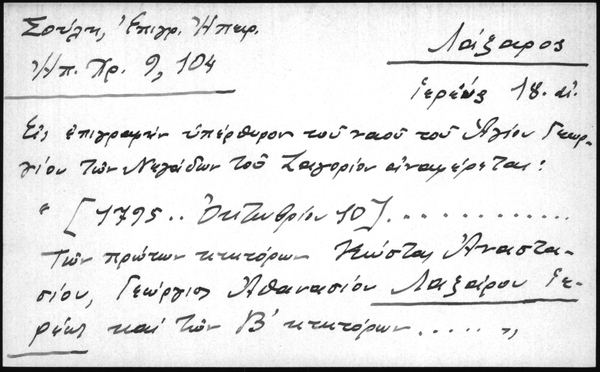 Σούλη, Ἐπιγρ. Ἠπειρ.
Ἠπ. Χρ. 9, 104
Λάζαρος
ἱερεύς 18. αἰ.
Εἰς ἐπιγραφήν ὑπέρθυρον τοῦ ναοῦ τοῦ Ἁγίου Γεωρ-
γίου τῶν Νεγάδων τοῦ Ζαγορίου ἀναφέρεται:
" [1795.. Ὀκτωβρίου 10]. . . . . . . . . . . .
τῶν πρώτων κτητόρων Κώστας Ἀναστα-
σίου, Γεώργιος Ἀθανασίου Λαζάρου ἱε-
ρέως καί τῶν Β' κτητόρων ..... "